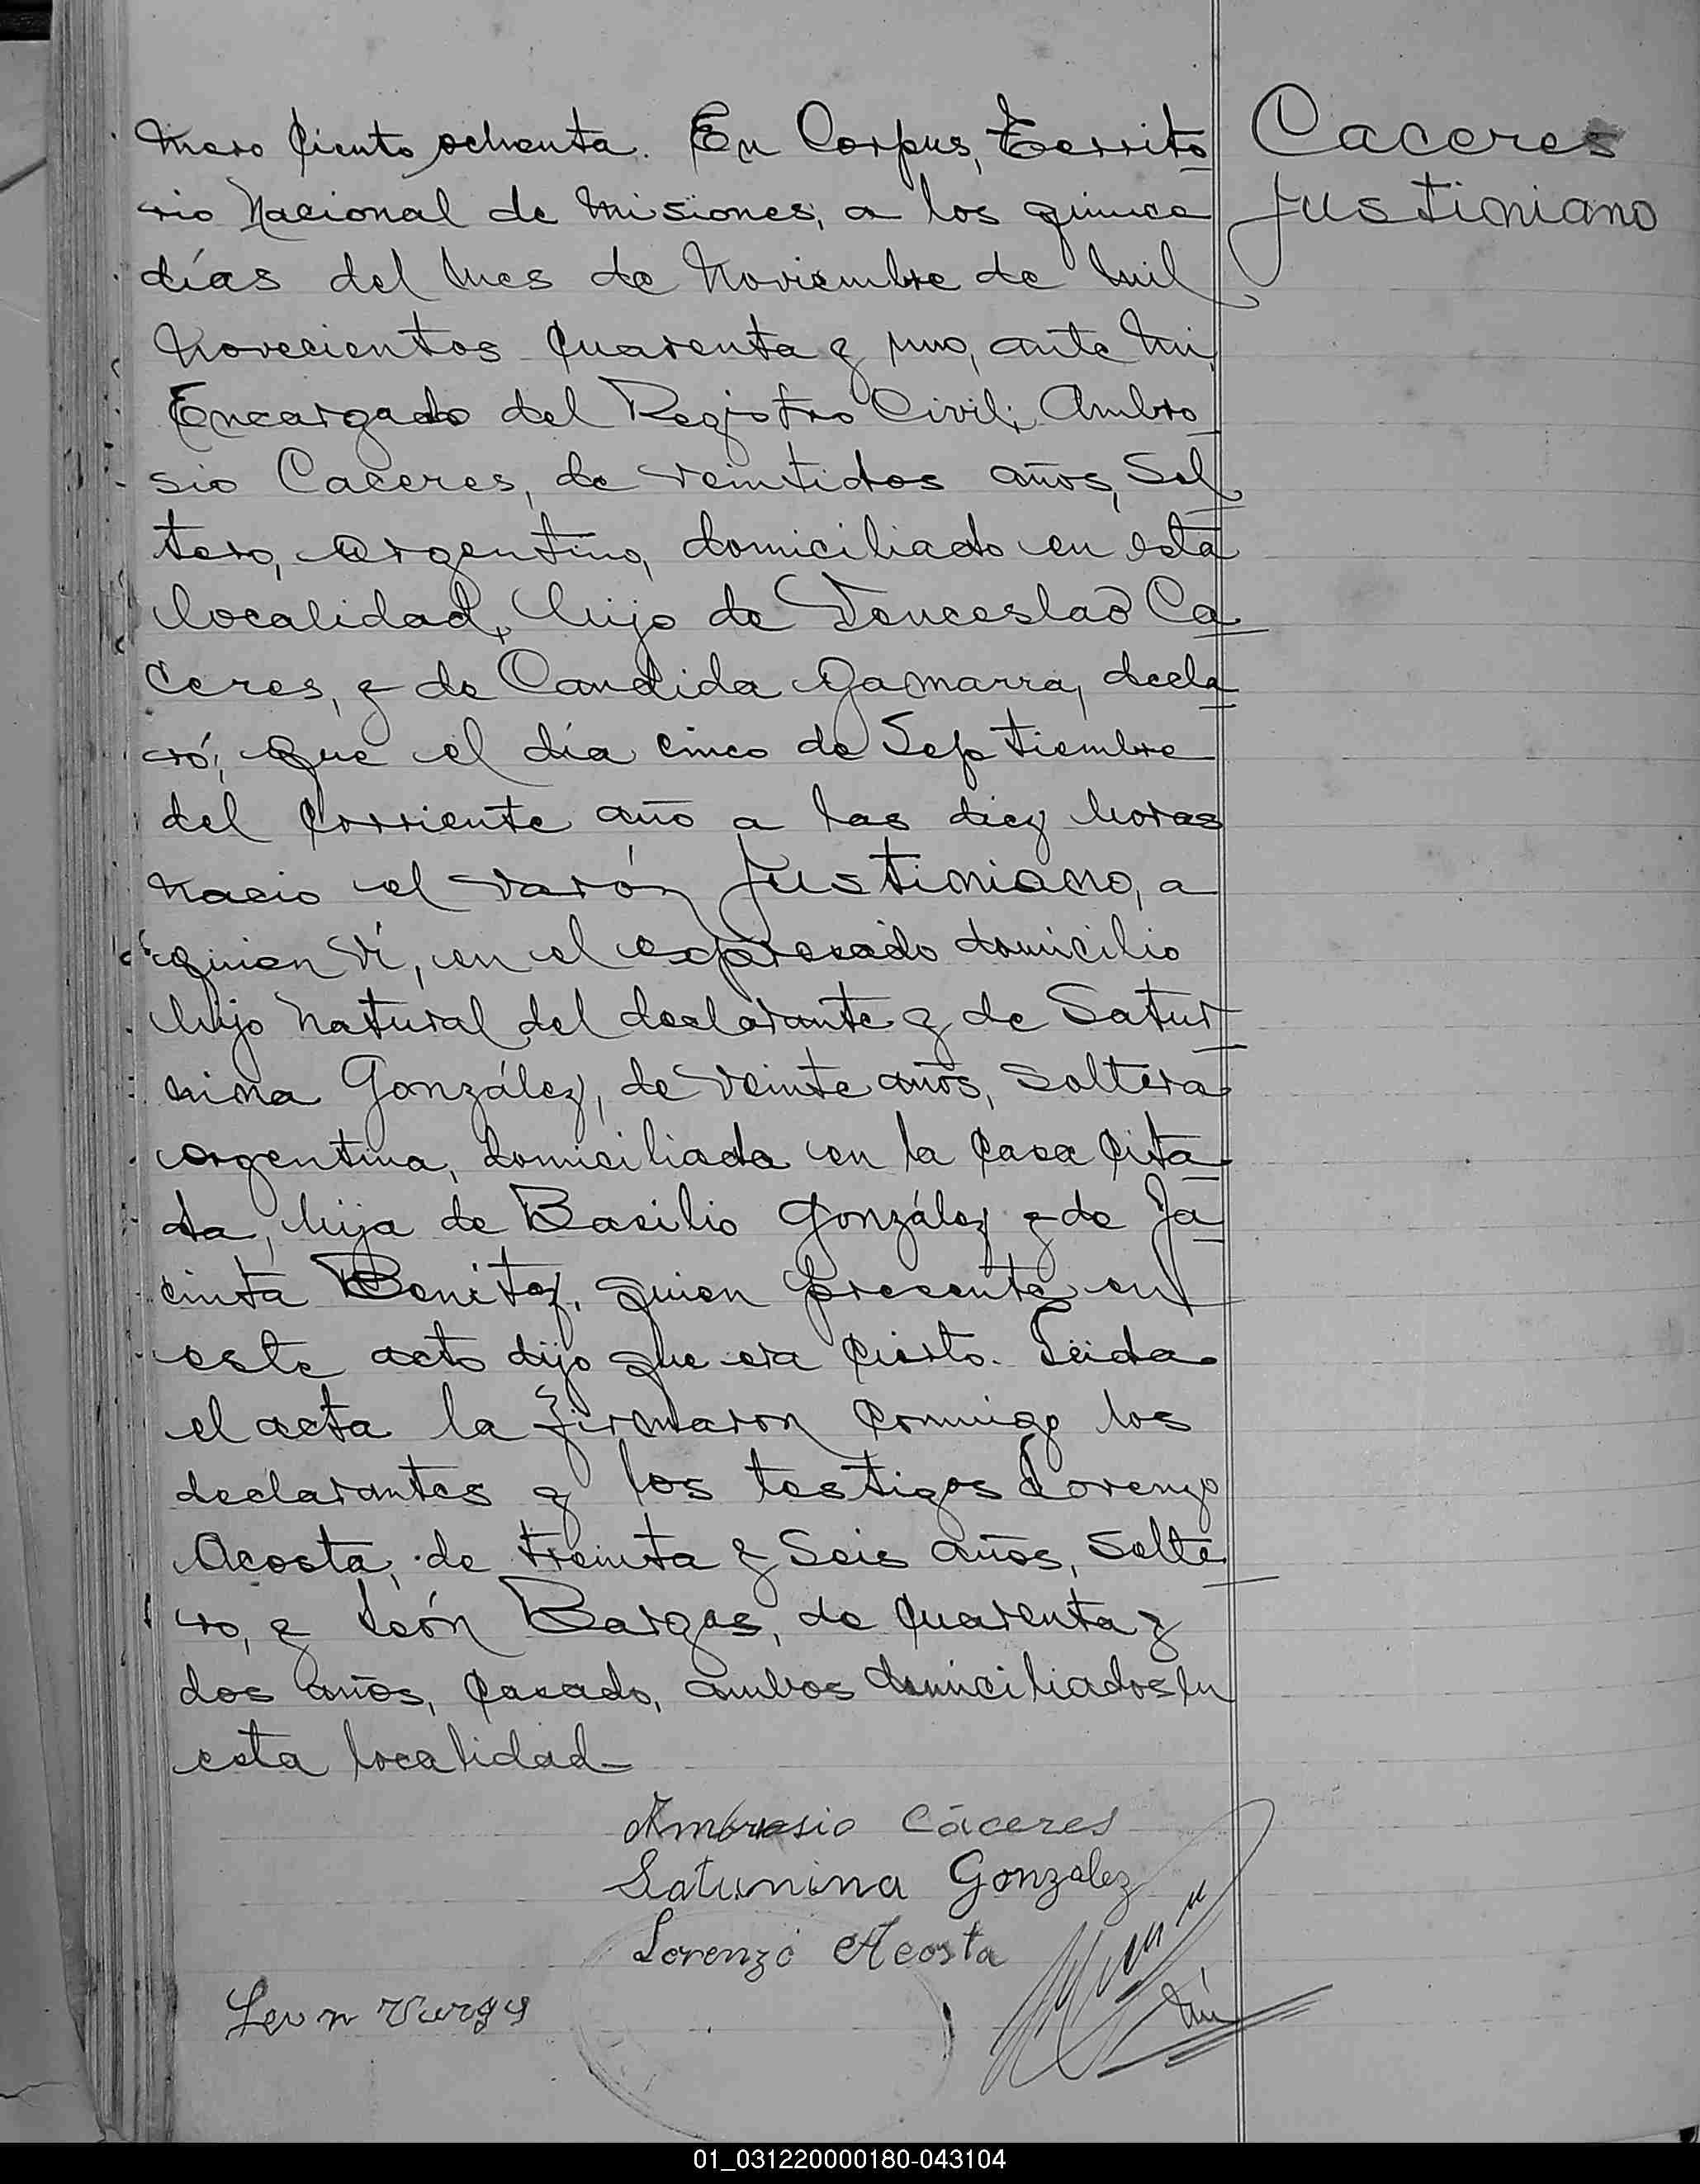 mero Ciento ochenta. En Corpus, Territo
rio Nacional de Misiones, a los quince
días del mes de Noviembre de mil
novecientos Cuarenta y uno, ante mi,
Encargado del Registro Civil; Ambro
sio Caceres, de veintidos años, Sol
tero, argentino, domiciliado en esta
localidad, hijo de Venceslao Ca
ceres, y de Candida Gamarra, decla
ró; que el día cinco de Septiembre
del Corriente año a las diez horas
nacio el varón Justiniano, a
quien ví, en el expresado domicilio
hijo natural del declarante y de Satur
nina González, de veinte años, soltera
argentina, domiciliada en la Casa Cita
da, hija de Basilio González y de Ja
cinta Benitez, quien presente en
este acto dijo que era Cierto. Leida
el acta la firmaron Conmigo los
declarantes y los testigos Lorenzo
Acosta, de treinta y Seis años, Solte
ro, y León Bargas, de Cuarenta y
dos años, Casado, ambos domiciliados en
esta localidad
Caceres
Justiniano
Ambrosio Cáceres
Saturnina Gonzalez
Lorenzo Acosta
Leon Vargas
01_031220000180-043104